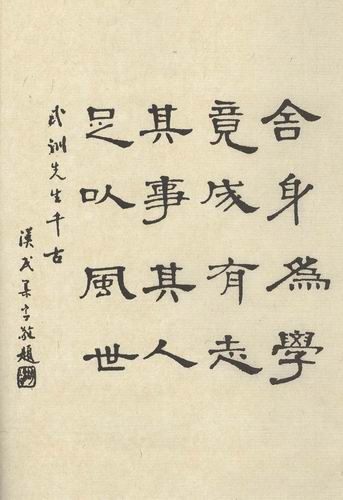 舍身為學
竟成有志
其事其人
足以風世
武訓先生千古
漢民集字敬題